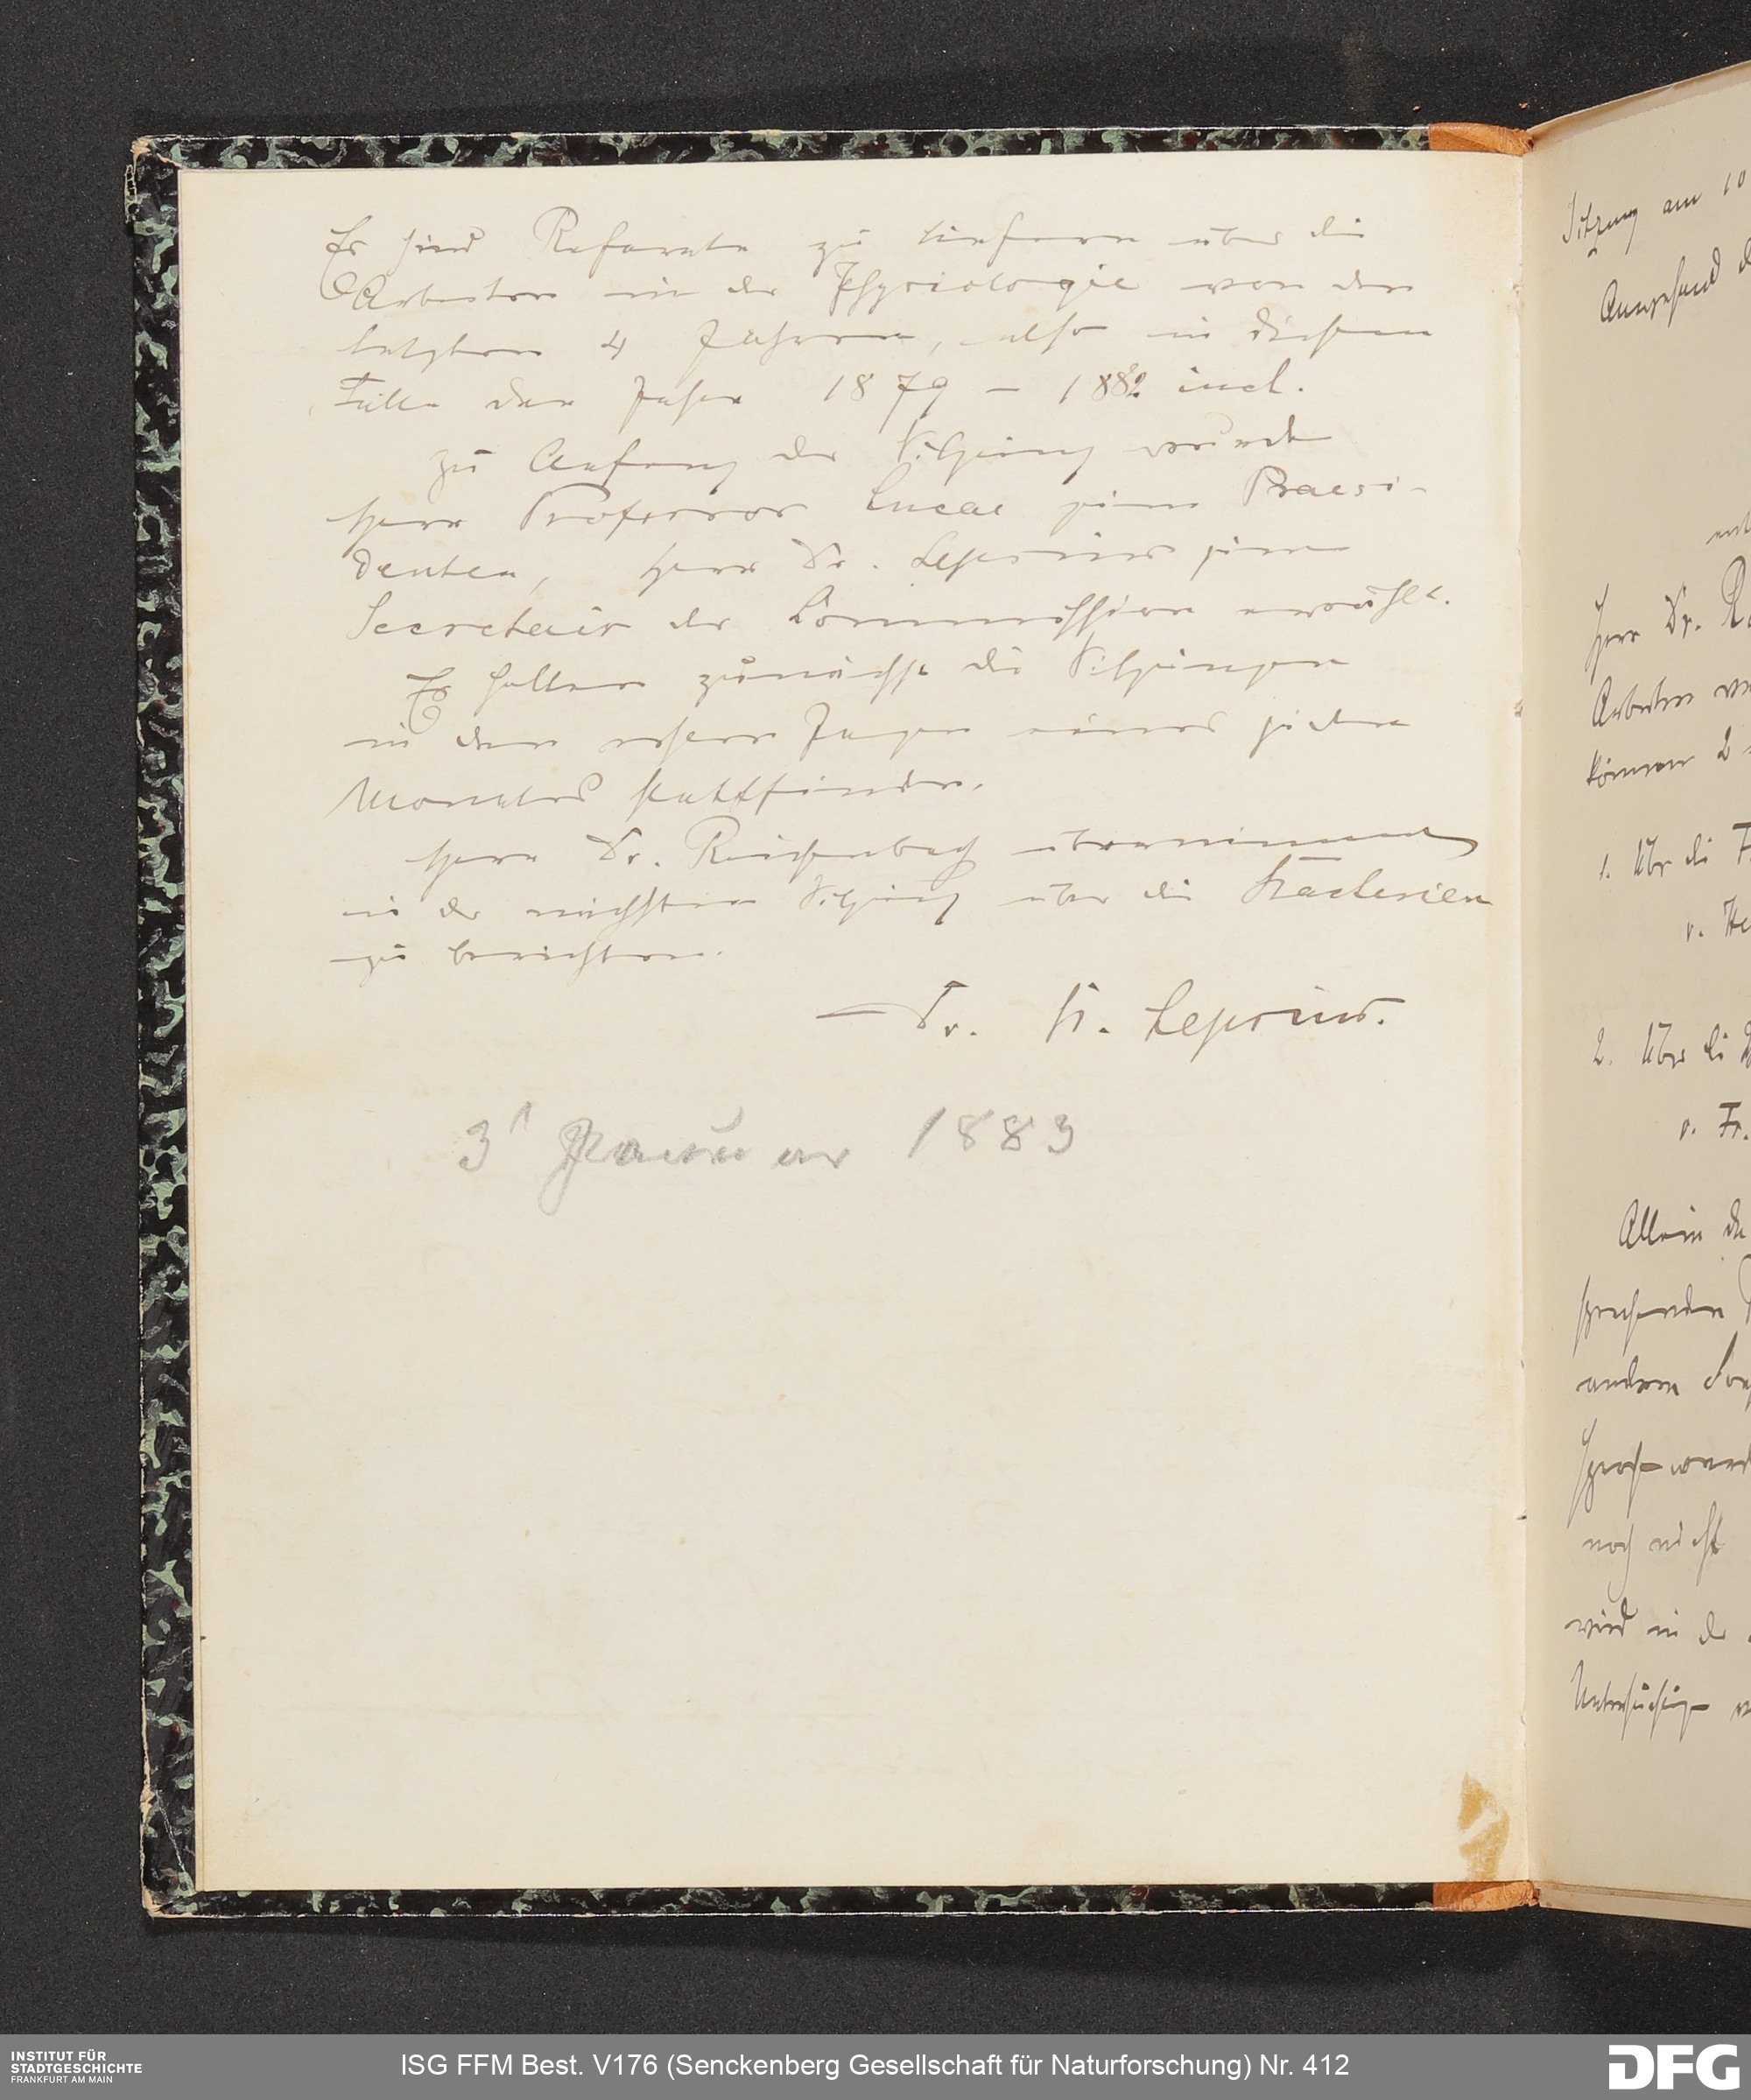 Es sind Referate zu liefern über die
Arbeiten in der Physiologie von den
letzten 4 Jahren, also in diesem
Falle den Jahren 1879 – 1882 incl.
Zu Anfang der Sitzung wurde
Herr Professor Lucae zum Praesi-
denten, Herr Dr. Lepsius zum
Secretair der Commission erwählt.
Es sollen zunächst die Sitzungen
in den ersten Tagen eines jeden
Monates stattfinden.
Herr Dr. Reichenbach übernimmt
in der nächsten Sitzung über die Bacterien
zu berichten.
Dr. B. Lepsius.
3 Januar 1883
Sitzung am 10
Anwesend d
Herr Dr.
Arbeiten
können 2
1. Über die
v. He
2. Über die
v. Fr.
Allein die
sprechenden
andern
noch nicht
wird in der
INSTITUT FÜR
STADTGESCHICHTE
FRANKFURT AM MAIN
ISG FFM Best. V176 (Senckenberg Gesellschaft für Naturforschung) Nr. 412
DFG